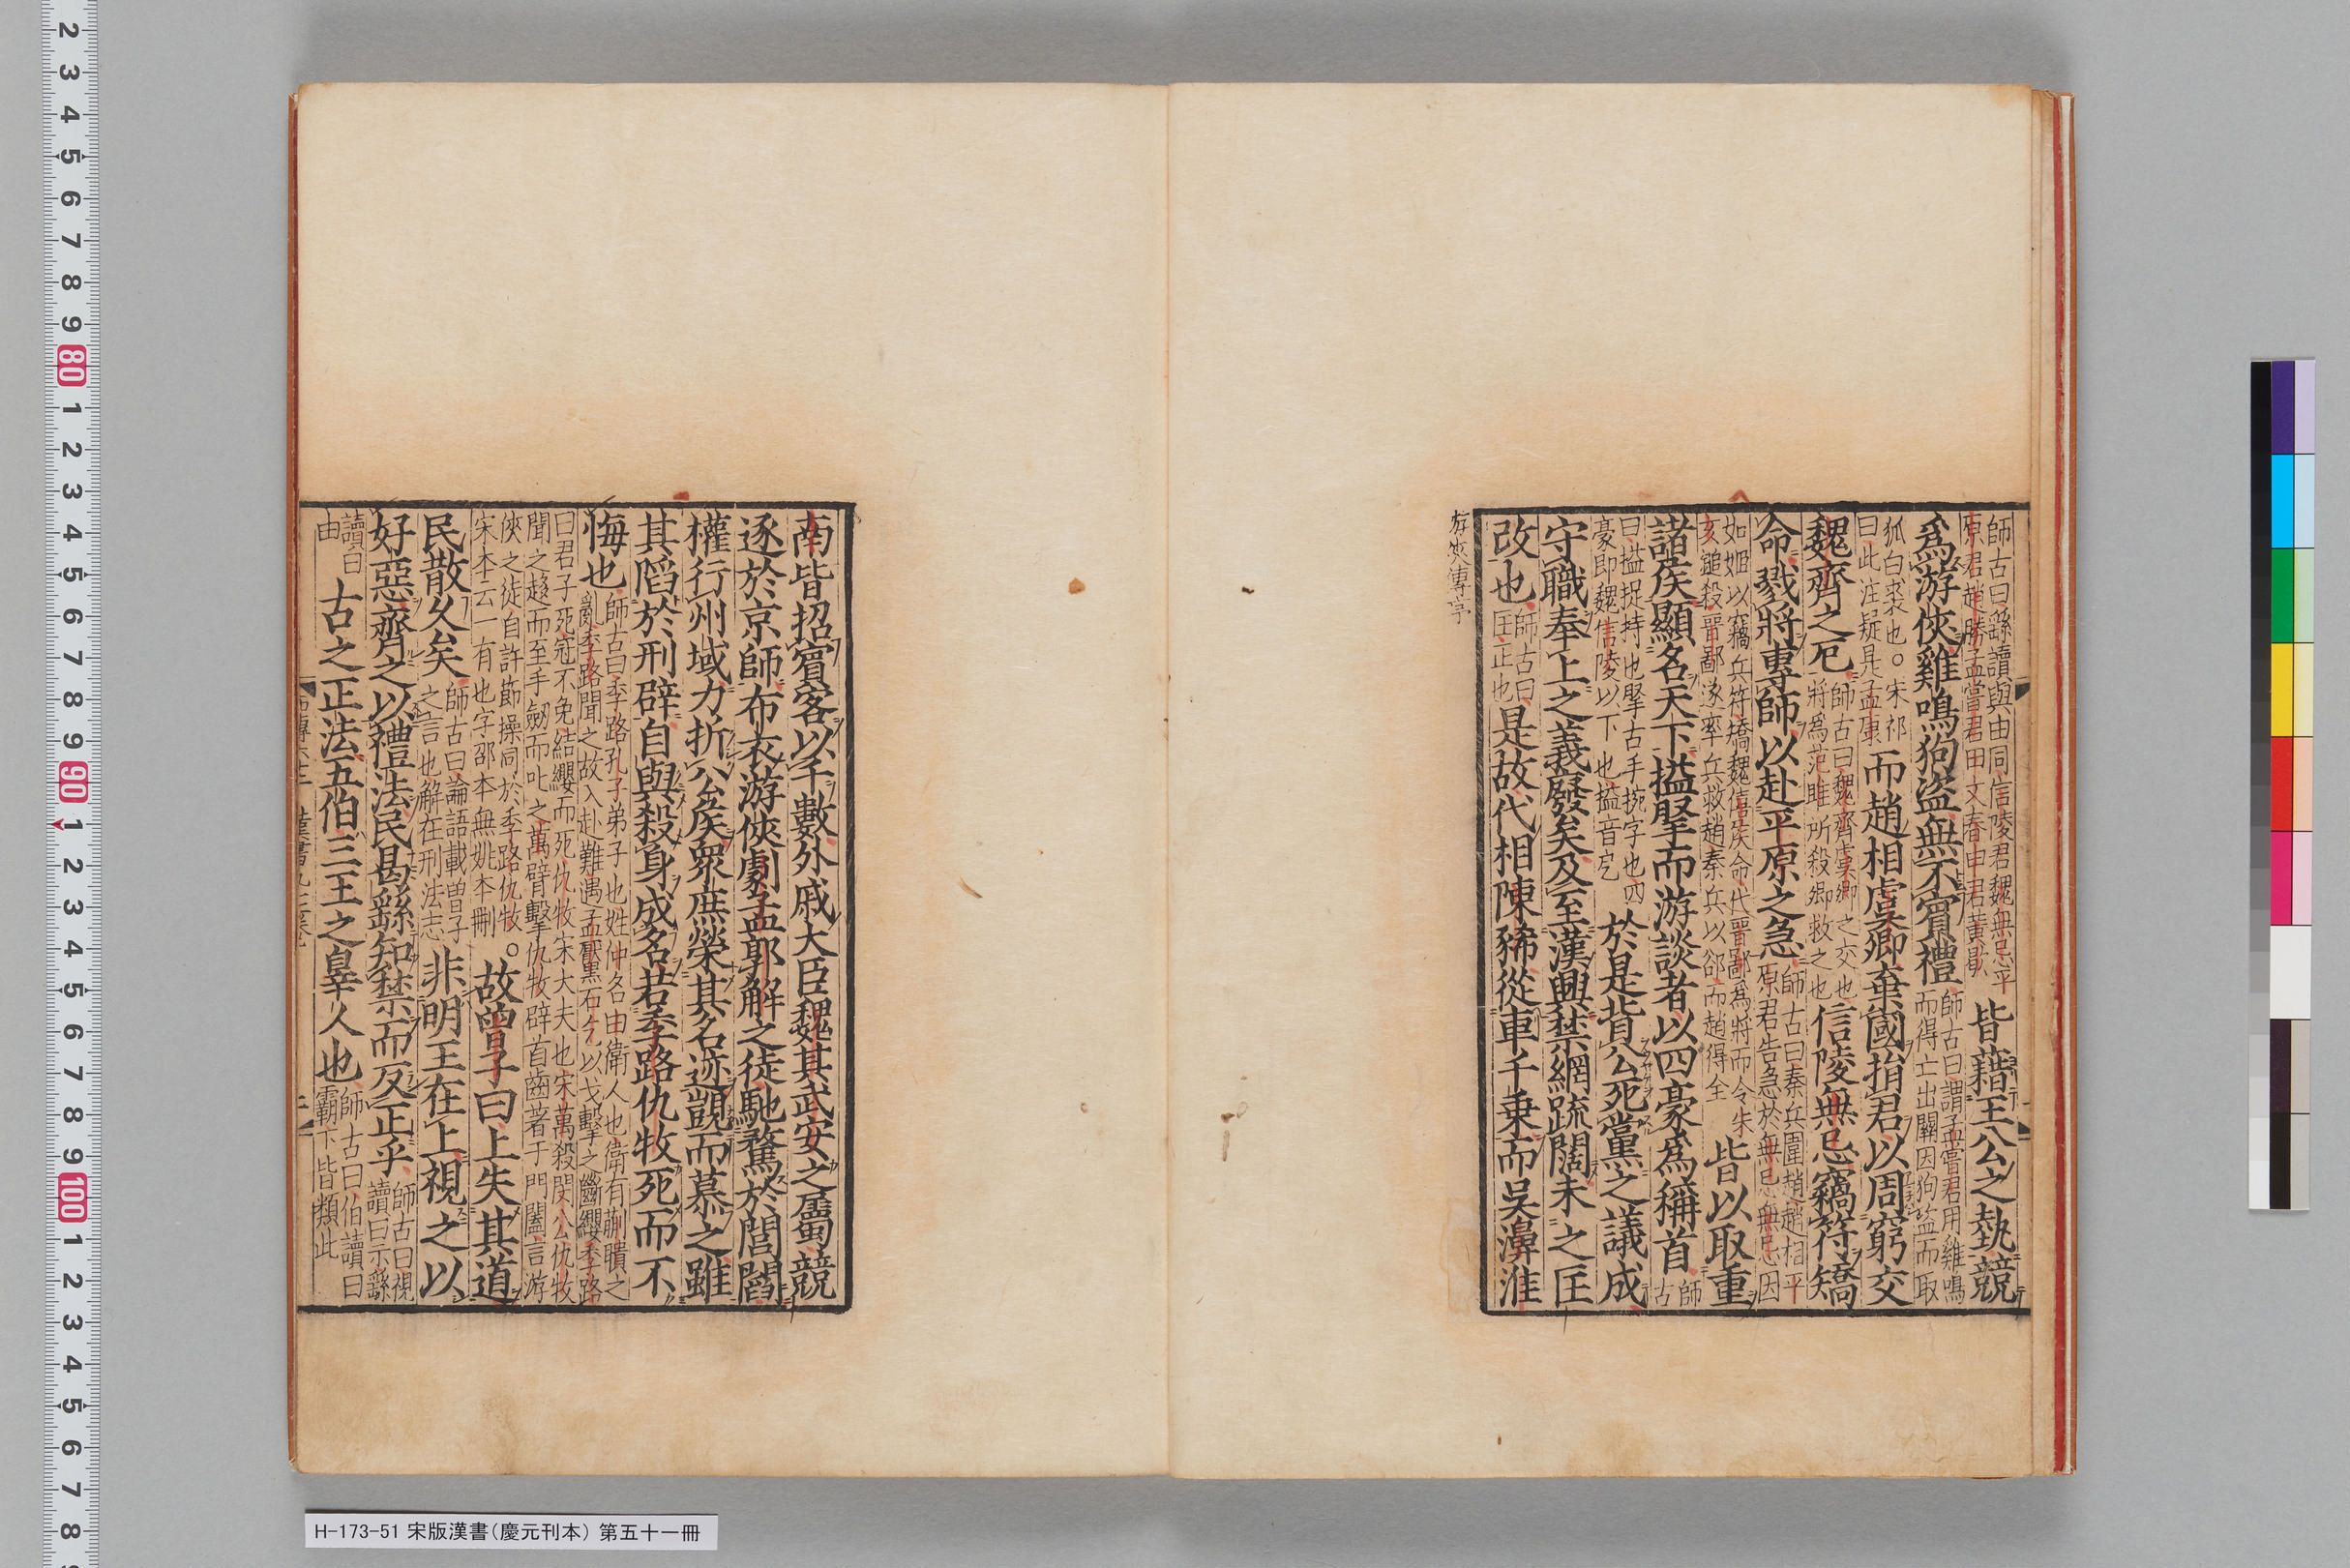 師古曰繇讀與由同信陵君魏無忌平
原君趙勝孟嘗君田文春申君黃歇
皆藉王公之埶競
爲游俠雞鳴狗盜無不賓禮
師古曰謂孟嘗君用雞鳴
而得士出關因狗盜而取
狐白裘也○宋祁
曰此注疑是孟康
而趙相虞卿棄國捐君以周窮交
魏齊之戹
師古曰魏齊虞卿之交也
將爲范雎所殺卿救之也
信陵無忌竊符矯
命戮將專師以赴平原之急
師古曰秦兵圍趙趙相平
原君告急於無忌無忌因
如姬以竊兵符矯魏僖侯命代晉鄙爲將而令朱
亥鎚殺晉鄙遂率兵救趙秦兵以郤而趙得全
皆以取重
諸侯顯名天下搤掔而游談者以四豪爲稱首
師古
曰搤捉持也掔古手捥字也四
豪即魏信陵以下也搤音戹
於是背公死黨之議成
守職奉上之義廢矣及至漢興禁網疏闊未之匡
改也
師古曰
匡正也
是故代相陳豨從車千乗而吳濞淮
游俠傳
南皆招賓客以千數外戚大臣魏其武安之屬競
逐於京師布衣游俠劇孟郭解之徒馳騖於閭閻
權行州域力折公侯衆庶榮其名迹覬而慕之雖
其陷於刑辟自與殺身成名若季路仇牧死而不
悔也
師古曰季路孔子弟子也姓仲名由衛人也衛有蒯聵之
亂季路聞之故入赴難遇孟黶石乞以戈擊之斷纓季路
曰君子死冠不免結纓而死仇牧宋大夫也宋萬殺閔公仇牧
聞之趨而至手劒而叱之萬臂擊仇牧碎首齒著于門闔言游
俠之徒自許節操同於季路仇牧○
宋本云一有也字邵本無姚本刪
故曾子曰上失其道
民散久矣
師古曰論語載曾子
之言也解在刑法志
非明王在上視之以
好惡齊之以禮法民曷繇知禁而反正乎
師古曰視
讀曰示繇
讀曰
由
古之正法五伯三王之辠人也
師古曰伯讀曰
霸下皆類此
H-173-51 宋版漢書(慶元刊本) 第五十一冊